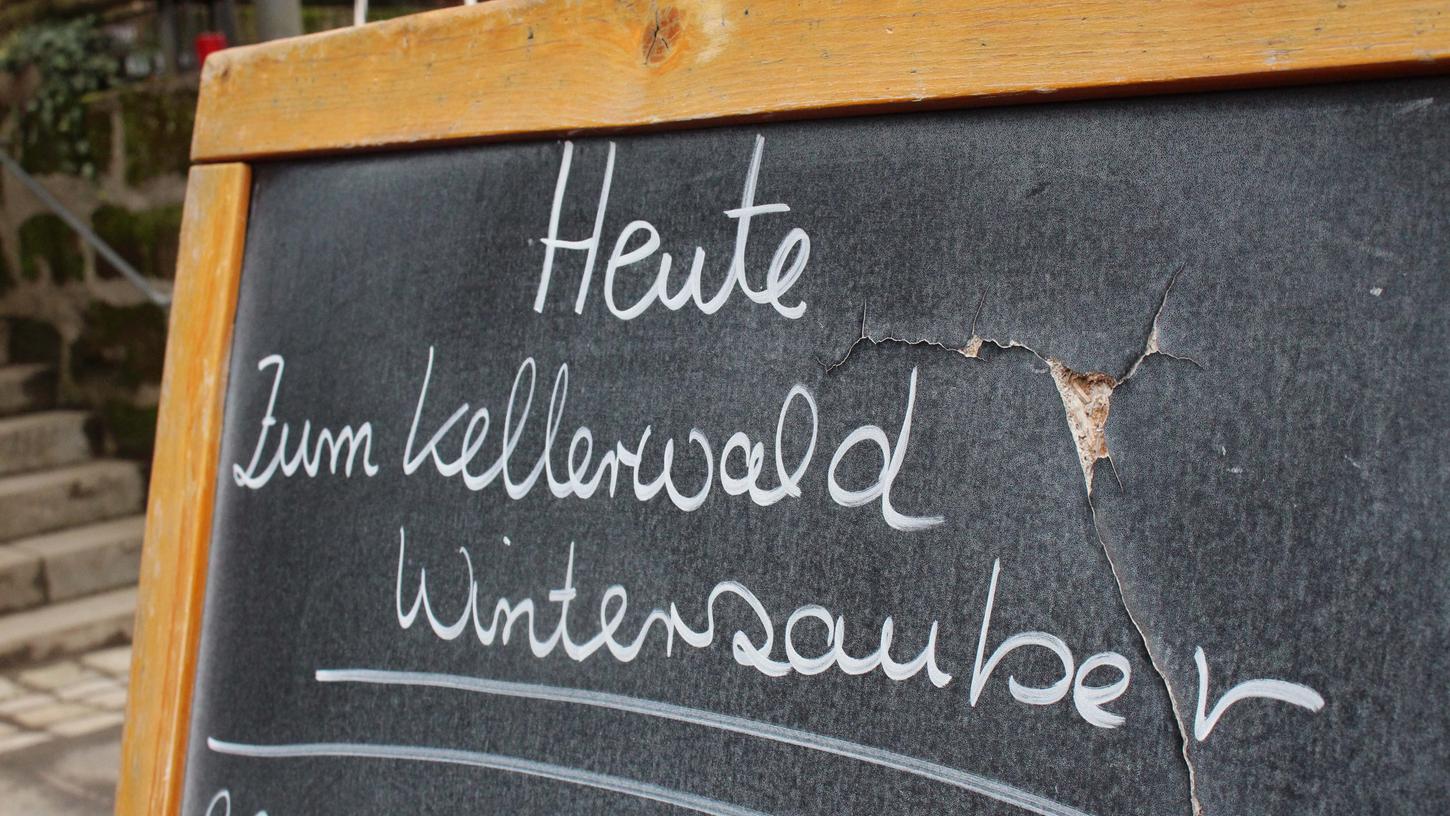 Heute
Zum Kellerwald
Winterzauber